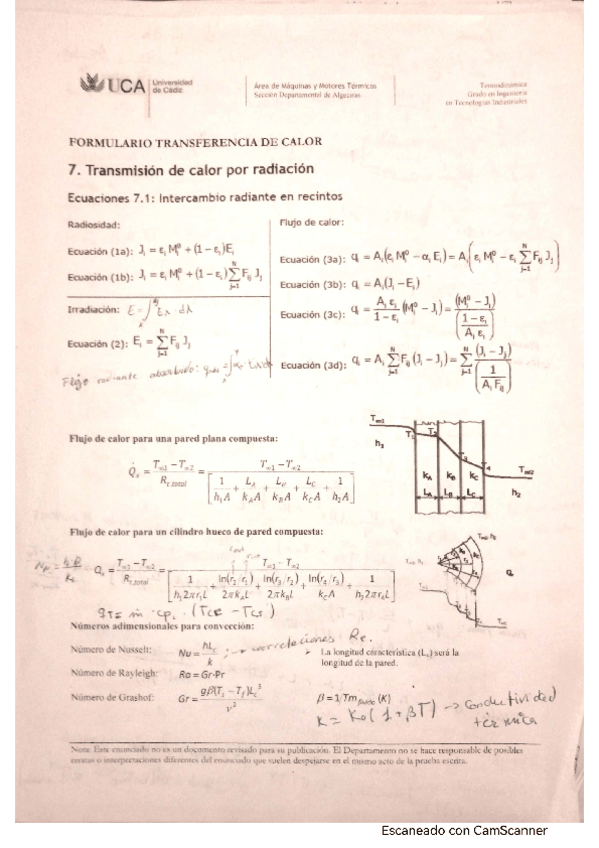 UCA Universidad de Cádiz
Área de Máquinas y Motores Térmicos
Sección Departamental de Algeciras
Termodinámica
Grado en Ingeniería
en Tecnologías Industriales
FORMULARIO TRANSFERENCIA DE CALOR
7. Transmisión de calor por radiación
Ecuaciones 7.1: Intercambio radiante en recintos
Radiosidad:
Ecuación (1a): J_i = ε_i M_i^0 + (1 − ε_i)E_i
Ecuación (1b): J_i = ε_i M_i^0 + (1 − ε_i) Σ_{j=1}^{N} F_ij J_j
Irradiación: E = ∫ E_λ dλ
Ecuación (2): E_i = Σ_{j=1}^{N} F_ij J_j
Flujo radiante absorbido:
Flujo de calor:
Ecuación (3a): q_i = A_i(ε_i M_i^0 − α_i E_i) = A_i(ε_i M_i^0 − ε_i Σ_{j=1}^{N} F_ij J_j)
Ecuación (3b): q_i = A_i(J_i − E_i)
Ecuación (3c): q_i = A_i ε_i / (1 − ε_i) (M_i^0 − J_i) = (M_i^0 − J_i) / ((1 − ε_i) / (A_i ε_i))
Ecuación (3d): q_i = A_i Σ_{j=1}^{N} F_ij (J_i − J_j) = Σ_{j=1}^{N} (J_i − J_j) / (1 / (A_i F_ij))
Flujo de calor para una pared plana compuesta:
Q̇_x = (T_∞1 − T_∞2) / R_t,total = (T_∞1 − T_∞2) / [1/(h_1 A) + L_A/(k_A A) + L_B/(k_B A) + L_C/(k_C A) + 1/(h_2 A)]
T_∞1
h_1
T_1
T_2
T_3
T_4
k_A k_B k_C
L_A L_B L_C
T_∞2
h_2
Flujo de calor para un cilindro hueco de pared compuesta:
Q_x = (T_∞1 − T_∞2) / R_t,total = (T_∞1 − T_∞2) / [1/(h_1 2πr_1 L) + ln(r_2/r_1)/(2πk_A L) + ln(r_3/r_2)/(2πk_B L) + ln(r_4/r_3)/(k_C A) + 1/(h_2 2πr_4 L)]
q_TF = ṁ · cp · (T_CE − T_CS)
Números adimensionales para convección:
Número de Nusselt: Nu = hL_c / k ; → correlaciones Re.
La longitud característica (L_c) será la
longitud de la pared.
Número de Rayleigh: Ra = Gr·Pr
Número de Grashof: Gr = gβ(T_s − T_f)L_c^3 / ν^2
β = 1/Tm_fluido (K)
K = K_0 (1 + βT) → Conductividad
térmica
Nota: Este enunciado no es un documento revisado para su publicación. El Departamento no se hace responsable de posibles
erratas o interpretaciones diferentes del enunciado que suelen despejarse en el mismo acto de la prueba escrita.
Escaneado con CamScanner